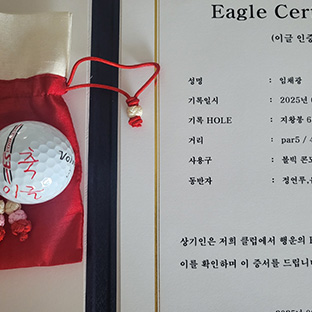 Eagle Cer
(이글 인증
성명 : 임채광
기록일시 : 2025년
기록 HOLE : 지왕불 6
거리 : par5 / 4
사용구 : 볼빅 콘도
동반자 : 정연루,
상기인은 저희 클럽에서 행운의 E
이를 확인하며 이 증서를 드립니다
축
이글